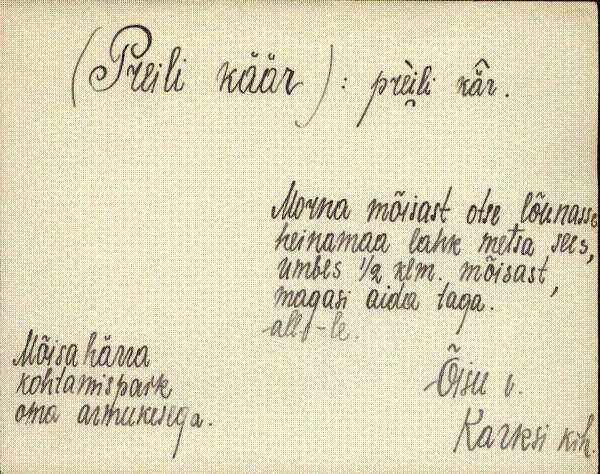 (Preili käär) : prèi̯li kä̂r.
Morna mõisast otse lõunasse
heinamaa lahk metsa sees,
umbes 1/2 klm. mõisast,
magasi aida taga.
Mõisahärra
kohtamispark
oma armukesega.
Õisu v.
Karksi kih.